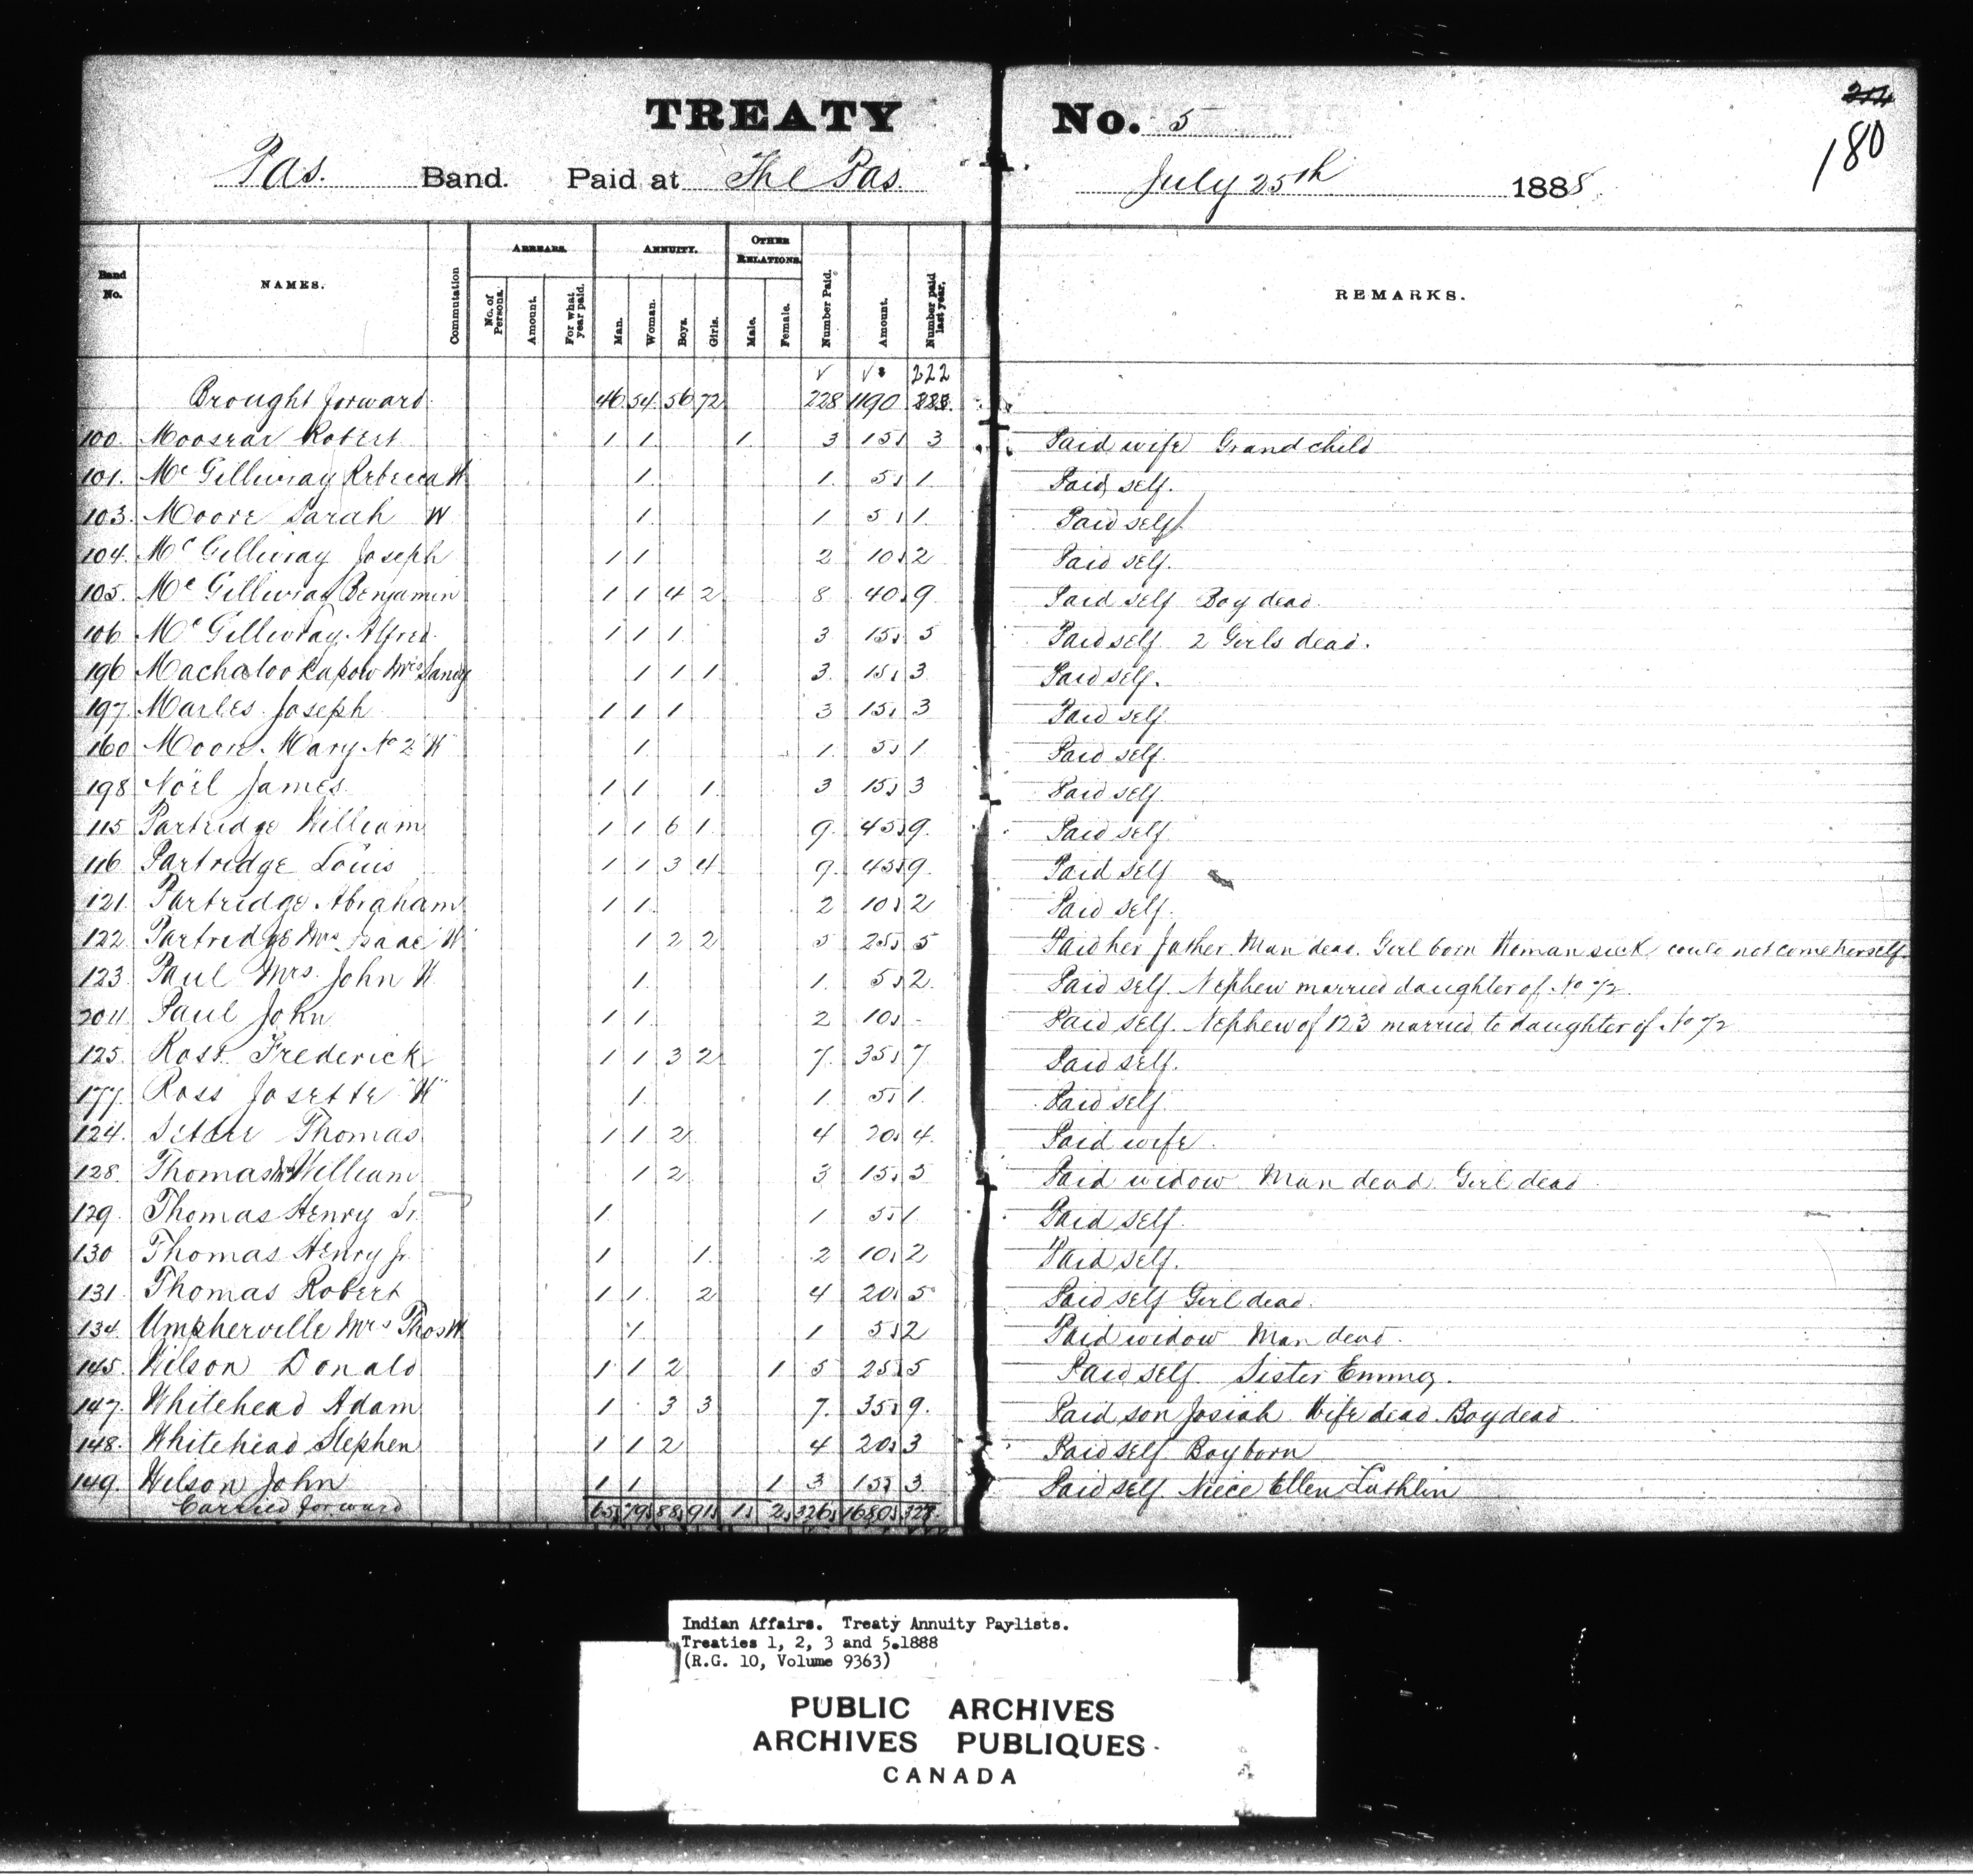 TREATY No. 5
180
Pas. Band. Paid at The Pas. July 25th 1888
Band No. NAMES. Commutation ARREARS. No. of Persons. Amount. For what year paid. ANNUITY. Man. Woman. Boys. Girls. OTHER RELATIONS. Male. Female. Number Paid. Amount. Number paid last year. REMARKS.
222
Brought forward 46 54 56 72 228 1190
100. Robert 1 1 1 3 15 3 Paid wife Grand child
101. Mc Gillivray Rebecca W 1 1 5 1 Paid self.
103. Moore Sarah W 1 1 5 1 Paid self
104. Mc Gillivray Joseph 1 1 2 10 2 Paid self.
105. Mc Gillivray Benjamin 1 1 4 2 8 40 9 Paid self Boy dead.
106 Mc Gillivray Alfred 1 1 1 3 15 5 Paid self 2 Girls dead.
196 Mrs Sandy 1 1 1 3 15 3 Paid self.
197 Marles Joseph 1 1 1 3 15 3 Paid self
160 Moore Mary No 2 W 1 1 5 1 Paid self.
198 Nöel James 1 1 1 3 15 3 Paid self
115 Partridge William 1 1 6 1 9 45 9 Paid self
116 Partridge Louis 1 1 3 4 9 45 9 Paid self
121 Partridge Abraham 1 1 2 10 2 Paid self.
122 Partridge Mrs Isaac W 1 2 2 5 25 5 Paid her father Man dead. Girl born Woman sick, could not come herself.
123 Paul Mrs. John W 1 1 5 2 Paid self. Nephew married daughter of No 72.
204 Paul John 1 1 2 10 - Paid self. Nephew of 123 married to daughter of No 72
125. Ross Frederick 1 1 3 2 7 35 7 Paid self.
177 Ross Josette "W" 1 1 5 1 Paid self
124. Thomas 1 1 2 4 20 4 Paid wife.
128. Thomas Mrs William 1 2 3 15 5 Paid widow Man dead Girl dead
129 Thomas Henry Sr. 1 1 5 1 Paid self.
130 Thomas Henry Jr. 1 1 2 10 2 Paid self.
131 Thomas Robert 1 1 2 4 20 5 Paid self Girl dead.
134 Umpherville Mrs Thos W 1 1 5 2 Paid widow Man dead.
145. Wilson Donald 1 1 2 1 5 25 5 Paid self Sister Emma.
147. Whitehead Adam 1 3 3 7 35 9. Paid son Josiah Wife dead. Boy dead
148. Whitehead Stephen 1 1 2 4 20 3 Paid self Boy born
149. Wilson John 1 1 1 3 15 3 Paid self Niece Ellen
Carried forward 65 79 88 91 1 2 326 1680
Indian Affairs. Treaty Annuity Paylists.
Treaties 1, 2, 3 and 5.1888
(R.G. 10, Volume 9363)
PUBLIC ARCHIVES
ARCHIVES PUBLIQUES
CANADA